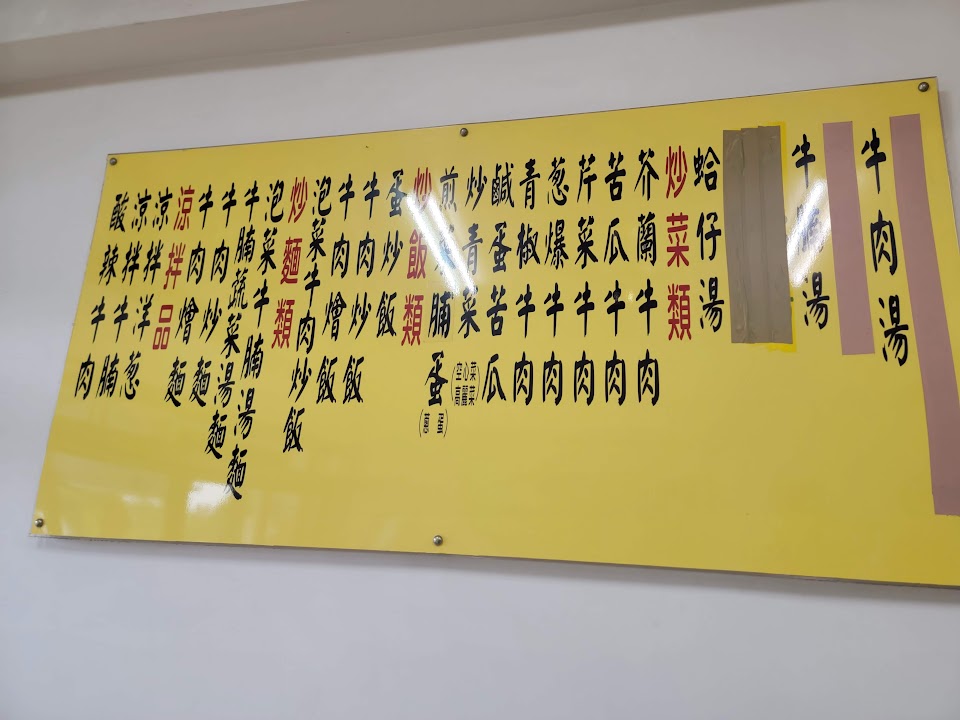 牛肉湯
牛湯
蛤仔湯
炒菜類
芥蘭牛肉
苦瓜牛肉
芹菜牛肉
葱爆牛肉
青椒牛肉
鹹蛋苦瓜
炒青菜(空心菜 高麗菜)
煎菜脯蛋(蔥蛋)
炒飯類
蛋炒飯
牛肉炒飯
牛肉燴飯
泡菜牛肉炒飯
炒麵類
泡菜牛腩湯麵
牛腩蔬菜湯麵
牛肉炒麵
牛肉燴麵
涼拌品
涼拌洋葱
涼拌牛腩
酸辣牛肉